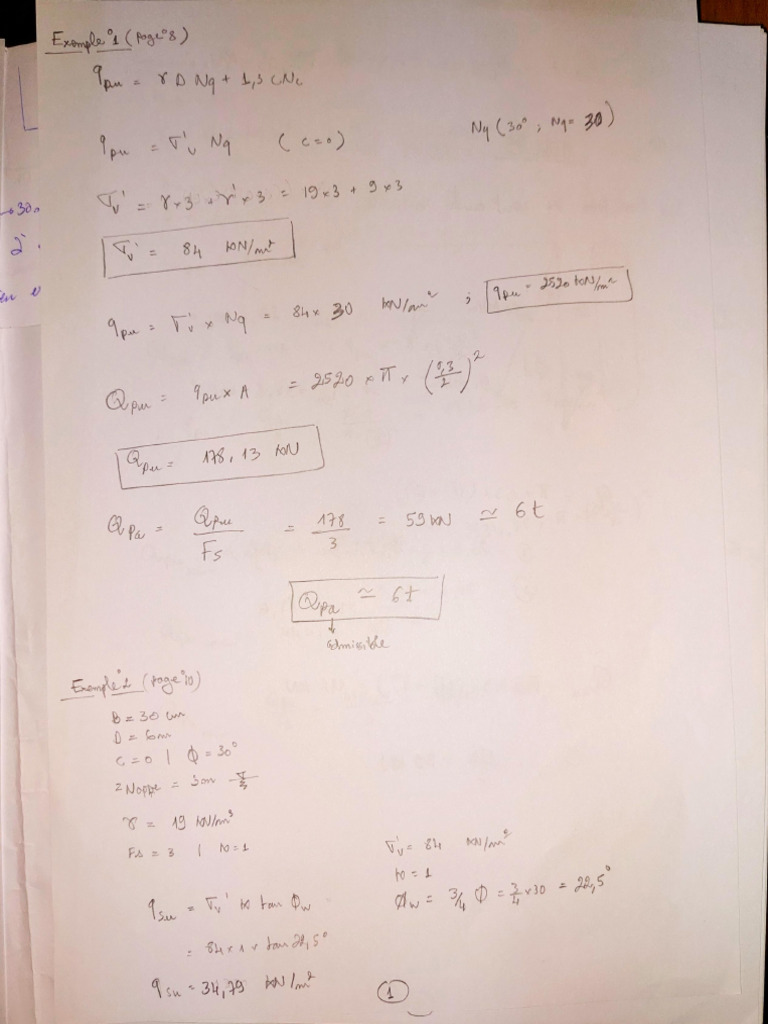 Example 1 (page 8)
qpu = γ D Nq + 1,3 C Nc
qpu = σ'v Nq (c=0) Nq (30°; Nq = 30)
σv' = γ×3 + γ'×3 = 19×3 + 9×3
σv' = 84 kN/m²
qpu = σv' × Nq = 84 × 30 kN/m² ; qpu = 2520 kN/m²
Qpu = qpu × A = 2520 × π × (0,3/2)²
Qpu = 178,13 kN
Qpa = Qpu/Fs = 178/3 = 59 kN ≃ 6t
Qpa ≃ 6t
↓
admissible
Example 2 (page 10)
B = 30 cm
D = 6m
C = 0 | ϕ = 30°
zNappe = 3m
γ = 19 kN/m³
Fs = 3 | K0 = 1
σ'v = 84 kN/m²
K0 = 1
ϕw = 3/4 ϕ = 3/4×30 = 22,5°
qsu = σv' K0 tan ϕw
= 84 × 1 × tan 22,5°
qsu = 34,79 kN/m²
1